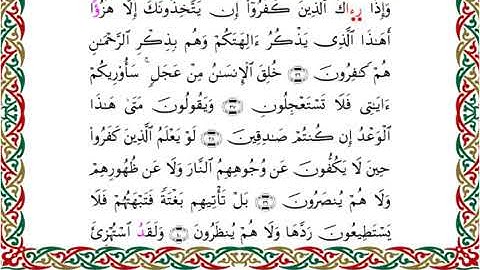 وَإِذَا رَءَاكَ ٱلَّذِينَ كَفَرُوٓا۟ إِن يَتَّخِذُونَكَ إِلَّا هُزُوًا
أَهَـٰذَا ٱلَّذِى يَذْكُرُ ءَالِهَتَكُمْ وَهُم بِذِكْرِ ٱلرَّحْمَـٰنِ
هُمْ كَـٰفِرُونَ ۝٣٦ خُلِقَ ٱلْإِنسَـٰنُ مِنْ عَجَلٍ ۚ سَأُو۟رِيكُمْ
ءَايَـٰتِى فَلَا تَسْتَعْجِلُونِ ۝٣٧ وَيَقُولُونَ مَتَىٰ هَـٰذَا
ٱلْوَعْدُ إِن كُنتُمْ صَـٰدِقِينَ ۝٣٨ لَوْ يَعْلَمُ ٱلَّذِينَ كَفَرُوا۟
حِينَ لَا يَكُفُّونَ عَن وُجُوهِهِمُ ٱلنَّارَ وَلَا عَن ظُهُورِهِمْ
وَلَا هُمْ يُنصَرُونَ ۝٣٩ بَلْ تَأْتِيهِم بَغْتَةً فَتَبْهَتُهُمْ فَلَا
يَسْتَطِيعُونَ رَدَّهَا وَلَا هُمْ يُنظَرُونَ ۝٤٠ وَلَقَدِ ٱسْتُهْزِئَ